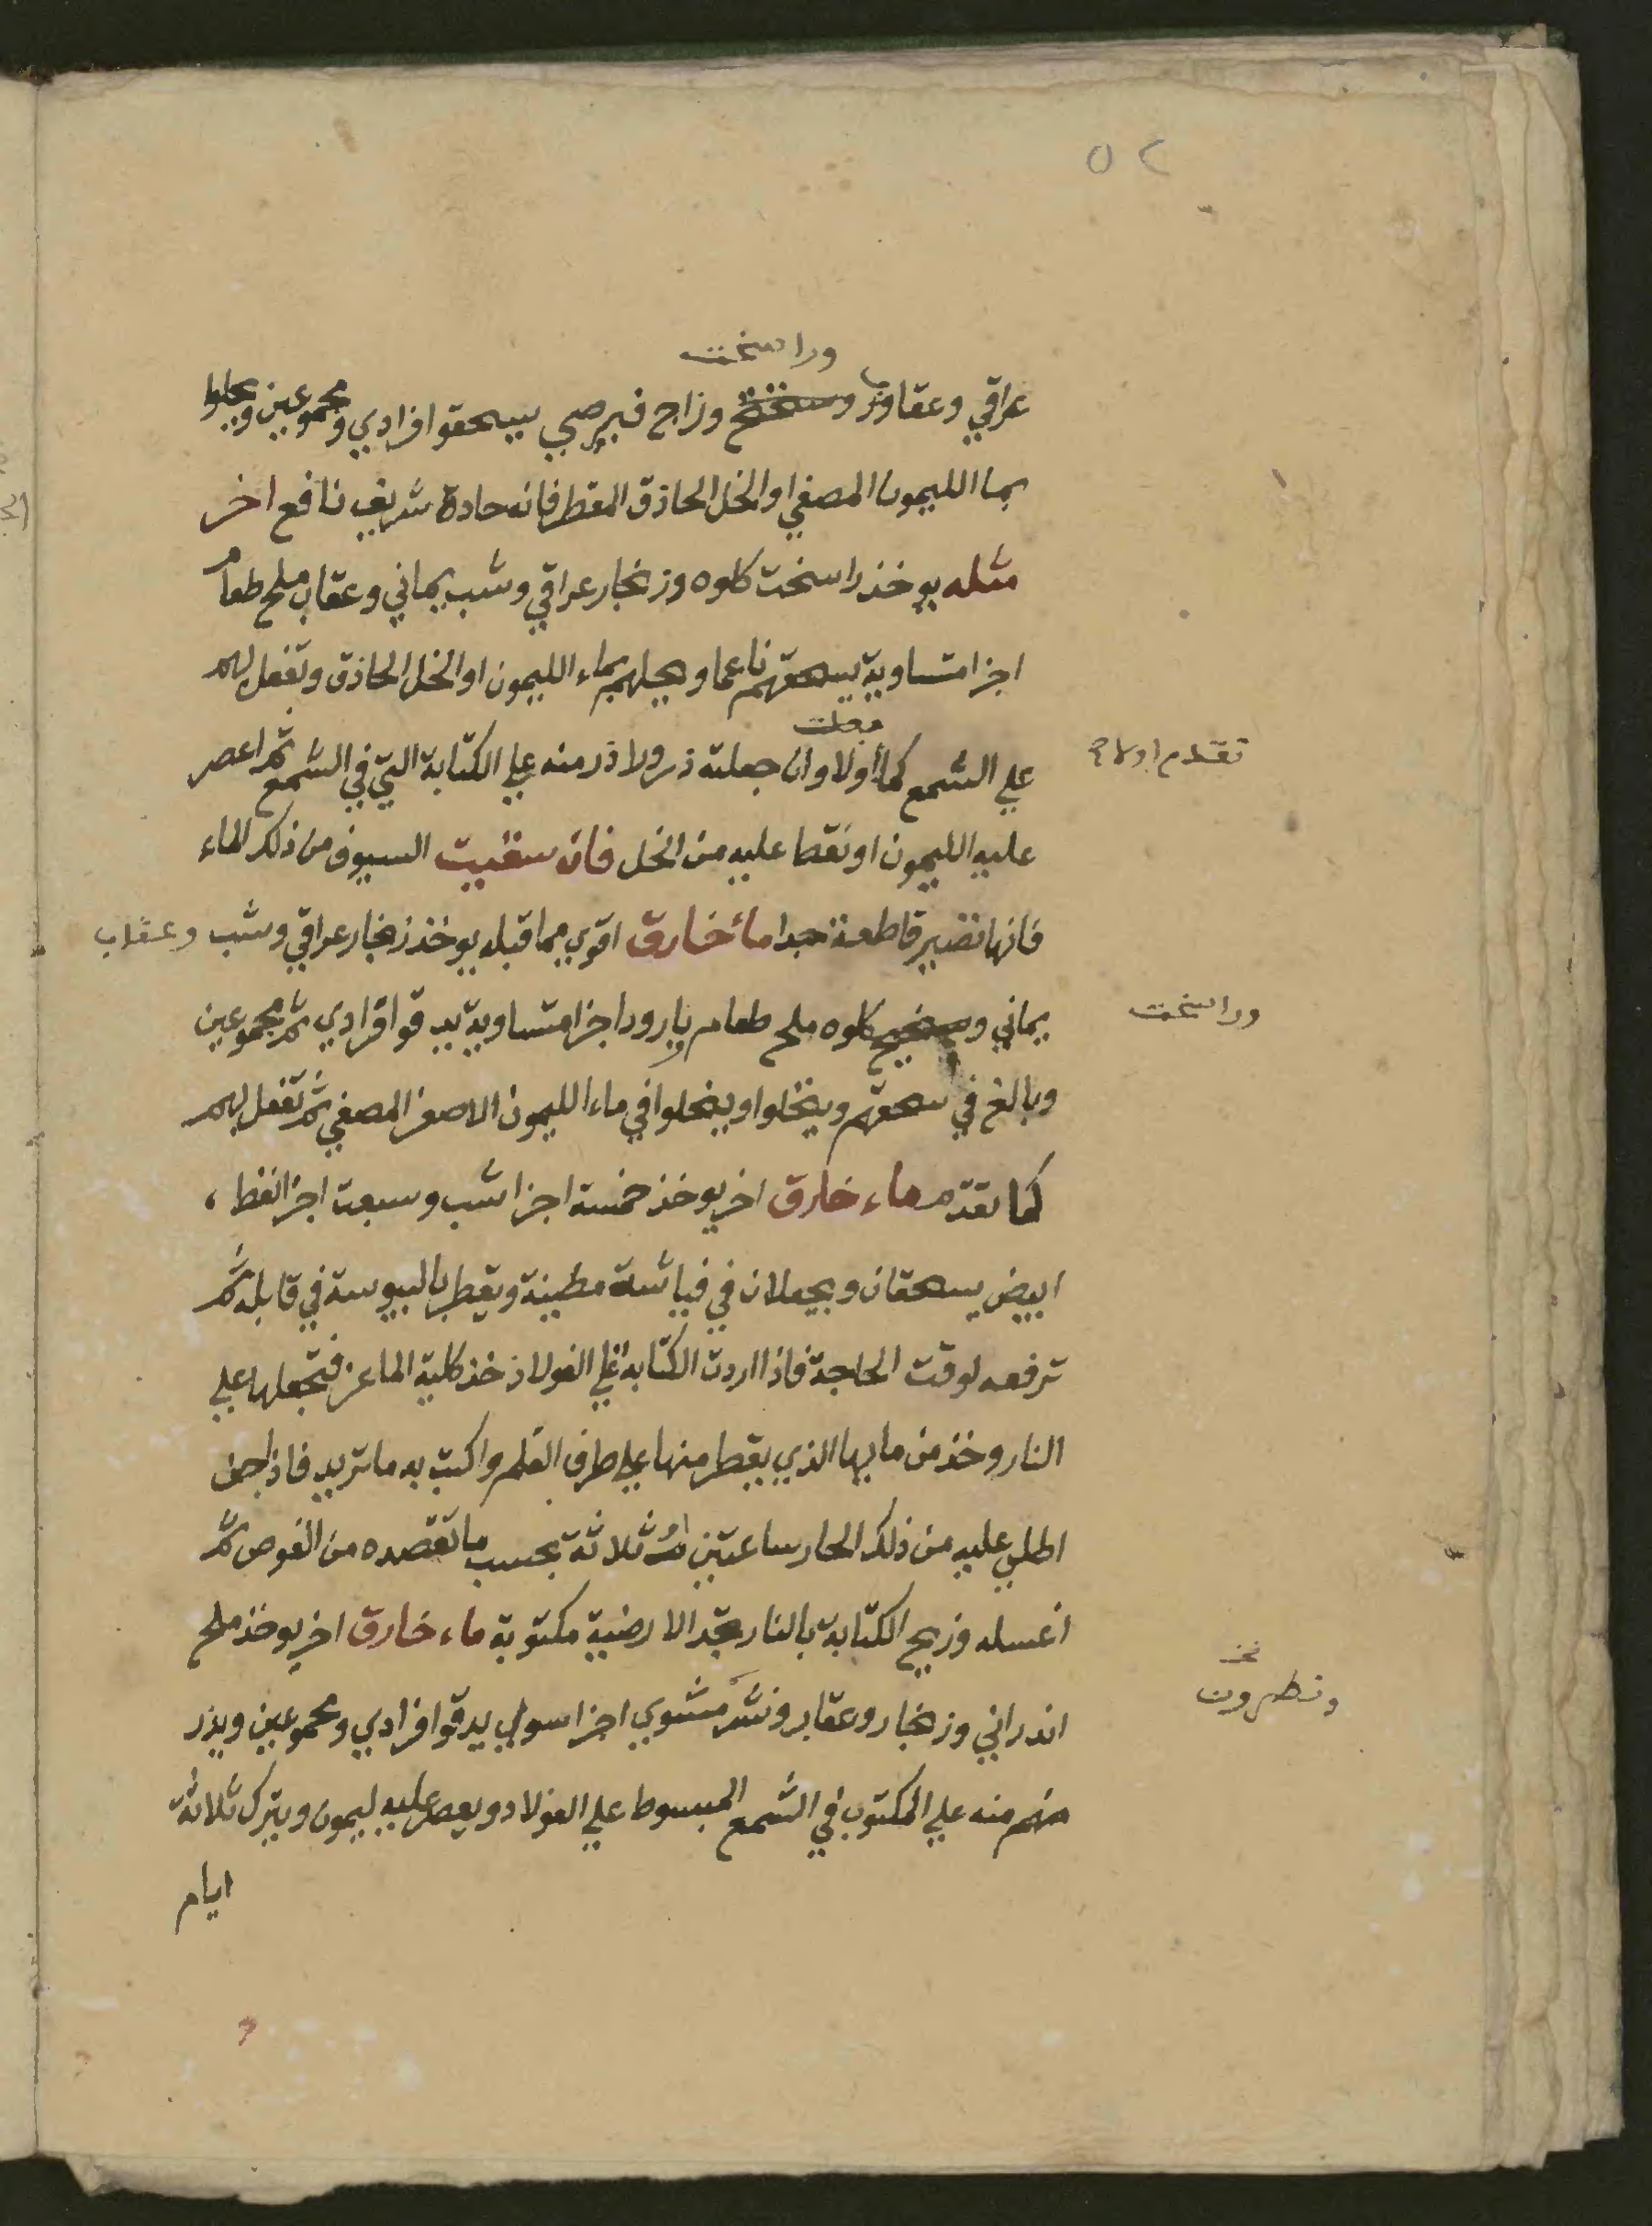 ٥٢
وراسخت
عراقي وعقاب وزاج قبرصي يسحقوا افرادي ومجموعين ويحلوا
بما الليمون المصفي او الخل الحاذق المقطر فانه حادة شريف نافع اخر
مثله يوخذ راسخت كلوه وزنجار عراقي وشب يماني وعقاب ملح طعام
اجزا متساوية يسحقهم ناعما ويحلهم بماء الليمون او الخل الحاذق وتفعل بهم
علي الشمع كما اولا وان جعلته ذرورا ذر منه علي الكتابة التي في الشمع ثم اعصر
فعلت
تقدم اولا
عليه الليمون او نقط عليه من الخل فان سقيت السيوف من ذلك الماء
فانها تصير قاطعة جدا ماء خارق اقوي مما قبله يوخذ زنجار عراقي وشب وعقاب
يماني كلوه ملح طعام بارود اجزا متساوية يدقوا افرادي ثم مجموعين
وراسخت
وبالغ في سحقهم وينخلوا ويحلوا في ماء الليمون الاصفر المصفي ثم تفعل بهم
كما تقدم ماء خارق اخر يوخذ خمسة اجزا شب وسبعت اجزا نفط
ابيض يسحقان ويجعلان في فياشة مطينة ويقطر باليبوسة في قابله ثم
ترفعه لوقت الحاجة فاذا اردت الكتابة علي الفولاذ خذ كلية الماعز فتجعلها علي
النار وخذ من مايها الذي يقطر منها علي طرف القلم واكتب به ما تريد فاذا جف
اطلي عليه من ذلك الحار ساعتين او ثلاثة بحسب ما تقصده من الغوص ثم
اغسله وزيح الكتابة بالنار تجد الارضية مكتوبة ماء خارق اخر يوخذ ملح
اندراني وزنجار وعقاب مشوي اجزا سوي يدقوا افرادي ومجموعين ويذر
ونطرون
منهم منه علي المكتوب في الشمع المبسوط علي الفولاد ويعصر عليه ليمون ويترك ثلاثة
ايام